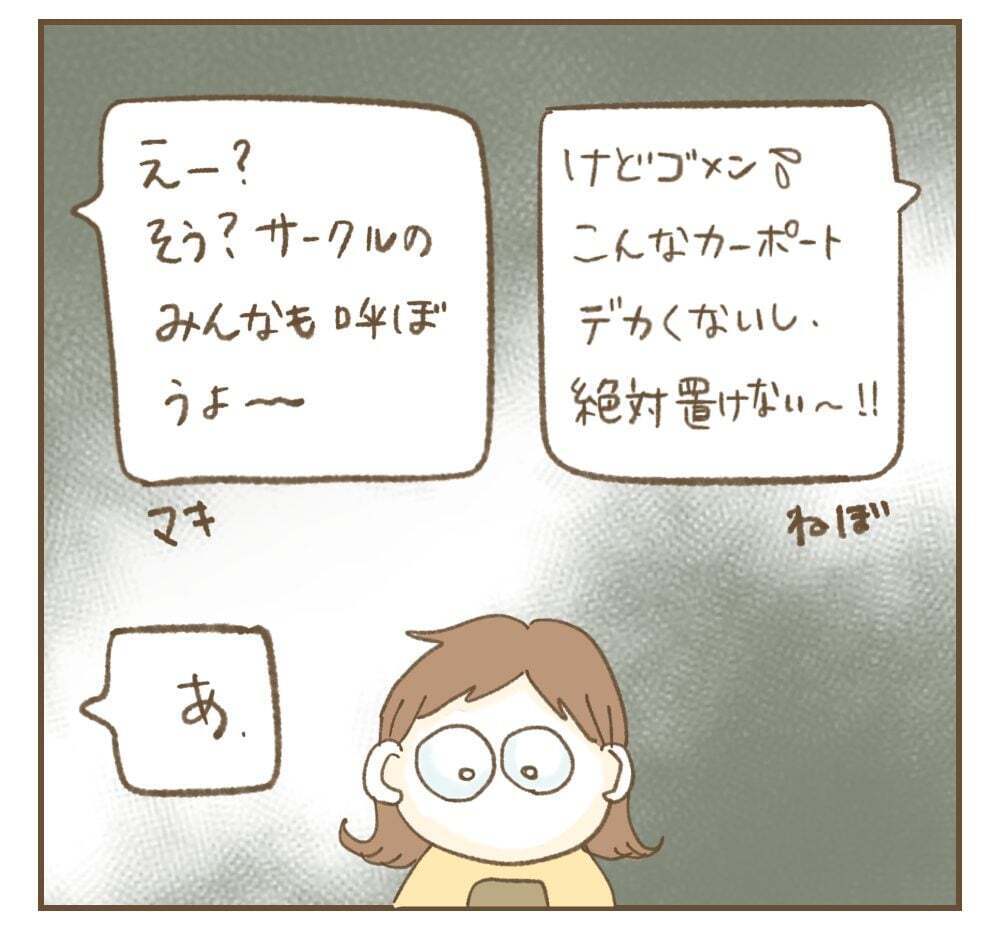 けどゴメン
こんなカーポート
デカくないし、
絶対置けない〜!!
ねぼ
えー?
そう?サークルの
みんなも呼ぼ
うよ〜
マキ
あ、